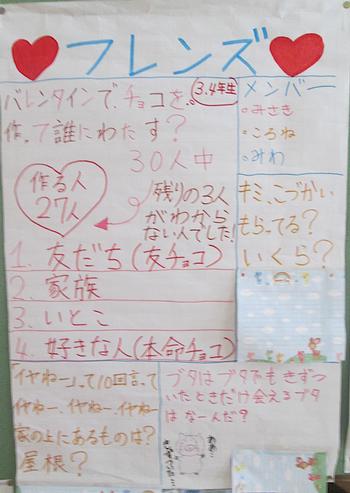 フレンズ
バレンタインで、チョコを、
3.4年生
作って誰にわたす?
30人中
作る人
27人
残りの3人
がわから
ない人でした!
1. 友だち(友チョコ)
2. 家族
3. いとこ
4. 好きな人(本命チョコ)
メンバー
みさき
ころね
みわ
キミ、こづかい
もらってる?
いくら?
「イヤねー」って10回言って
イヤねー、イヤねー、イヤねー
家の上にあるものは?
屋根?
ブタはブタでもきずつ
いたときだけ会えるブタ
はなーんだ?